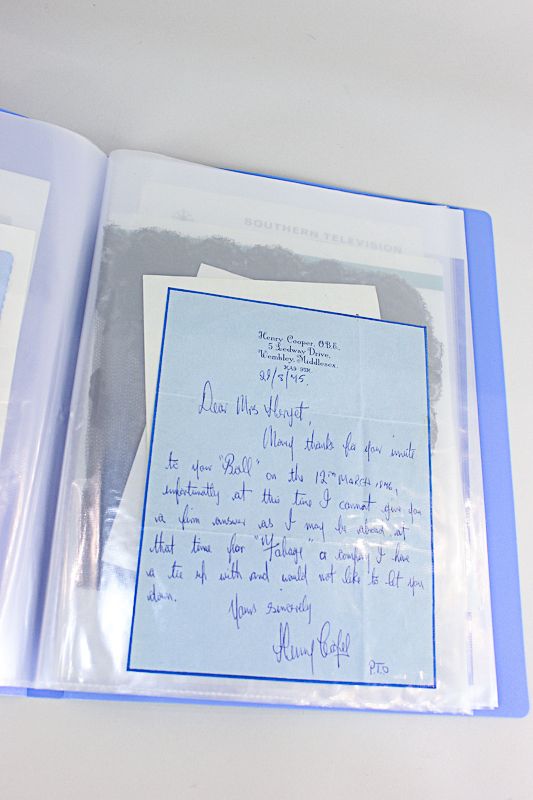 SOUTHERN TELEVISION
Henry Cooper, O.B.E.,
5 Ledway Drive,
Wembley, Middlesex.
HA9 9TH
29/8/75
Dear Mrs
Many thanks for your invite
to your "Ball" on the 12TH MARCH 1976,
unfortunatly at this time I cannot give you
a firm answer as I may be abroad at
that time for "Faberge" a company I have
a tie up with and would not like to let you
down.
Yours sincerely
Henry Cooper
P.T.O